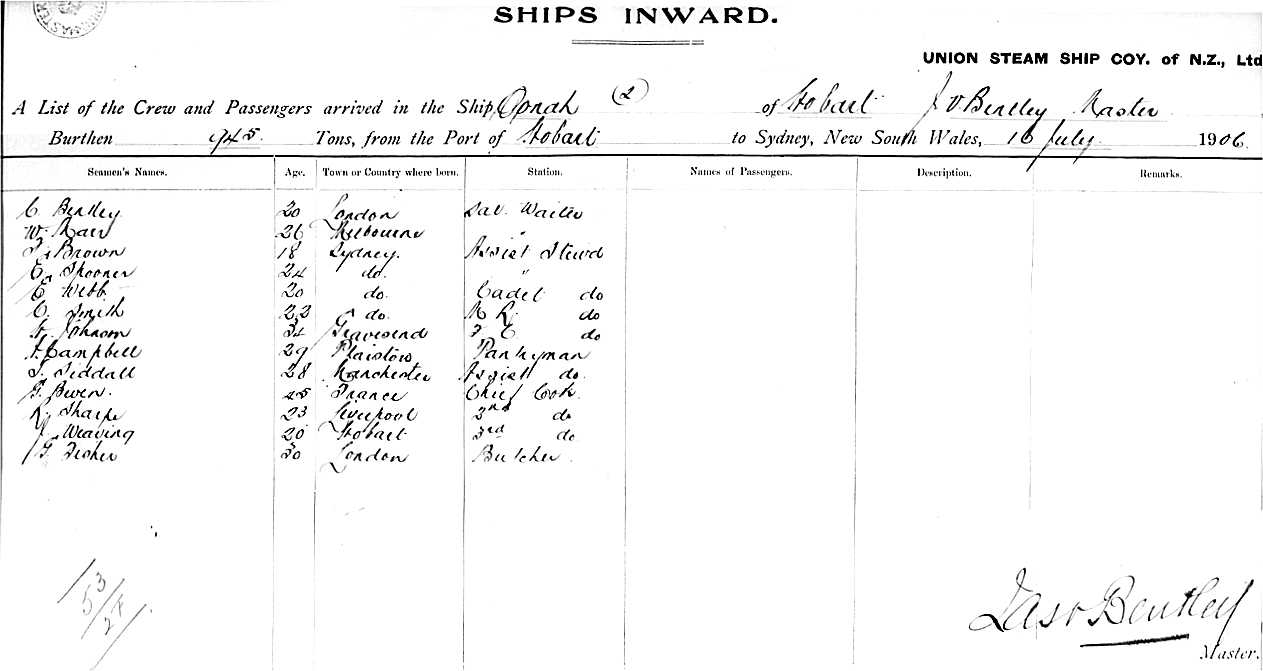 SHIPS INWARD.
UNION STEAM SHIP COY. of N.Z., Ltd
A List of the Crew and Passengers arrived in the Ship, Oonah (2) of Hobart J V Bentley Master
Burthen 945 Tons, from the Port of Hobart to Sydney, New South Wales, 16 July 1906
Seamen's Names. Age. Town or Country where born. Station. Names of Passengers. Description. Remarks.
C. Bentley 20 London Sal. Waiter
W. 26 Melbourne "
Brown 18 Sydney. Assist Stewd
E. Spooner 24 do. "
E Webb 20 do. Cadet do
C. Smith 22 do. do
Johnson 34 Gravesend F C do
Campbell 29 Plaistow Pantryman
Siddall 28 Manchester Assist do.
G. 45 France Chief Cook.
R. Sharpe 23 Liverpool 2nd do
J. Weaving 20 Hobart 3rd do.
G. Fisher 30 London Butcher.
53/27
Jas V Bentley
Master.